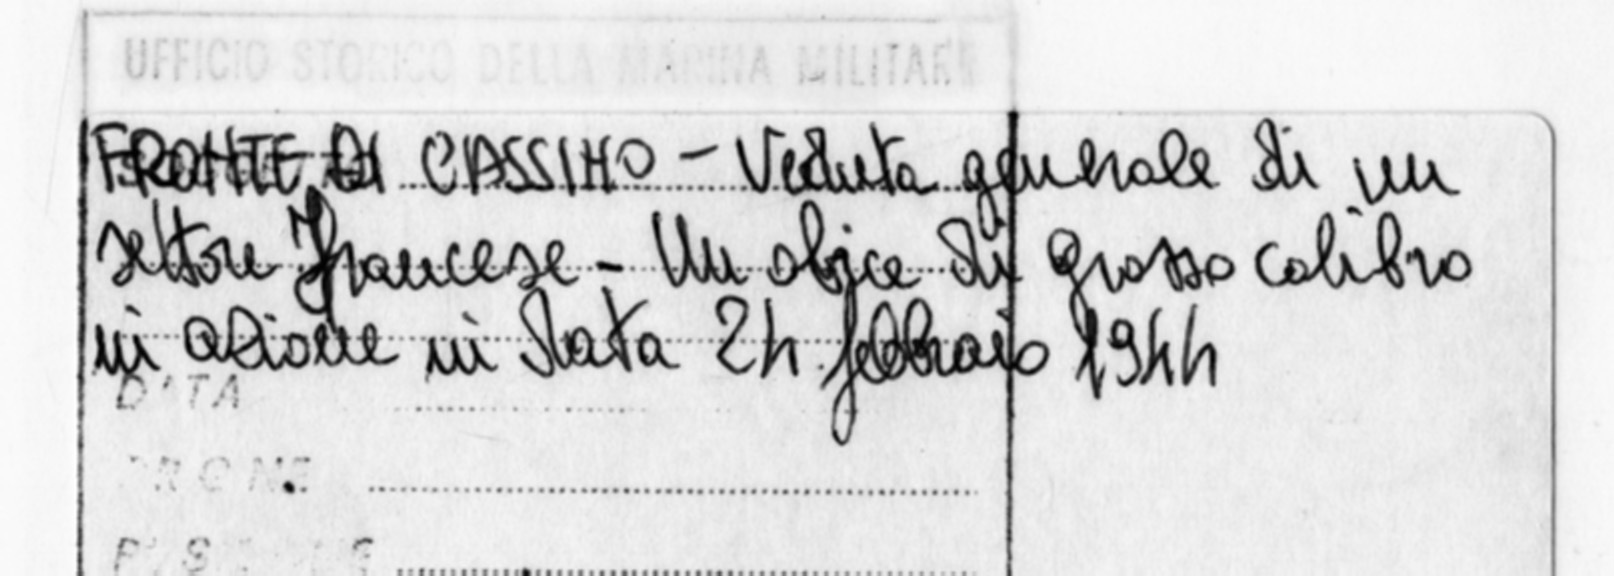 UFFICIO STORICO DELLA MARINA MILITARE
FRONTE DI CASSINO - Veduta generale di un
settore francese - Un obice di grosso calibro
in azione in data 24 febbraio 1944
DATA